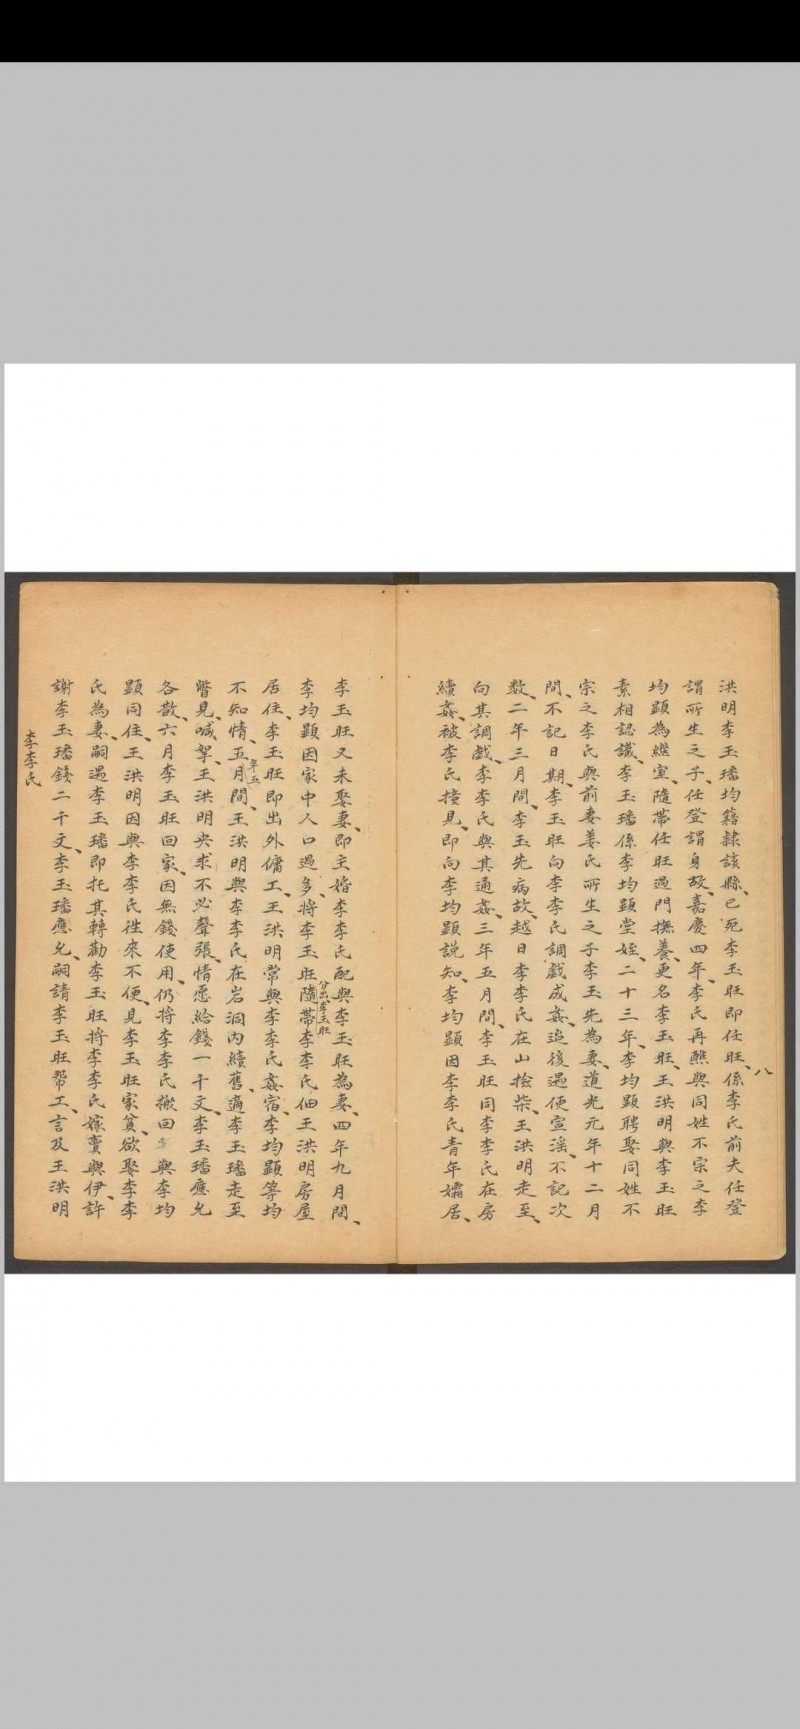 八
洪明李玉璠均籍隸該縣、已死李玉旺即任旺、係李氏前夫任登
謂所生之子、任登謂身故、嘉慶四年、李氏再醮與同姓不宗之李
均顕為繼室、隨帶任旺過門撫養、更名李玉旺、王洪明與李玉旺
素相認識、李玉璠係李均顕堂姪、二十三年、李均顕聘娶同姓不
宗之李氏與前妻姜氏所生之子李玉先為妻、道光元年十二月
間、不記日期、李玉旺向李李氏調戲成姦、追後遇便宣滛、不記次
数、二年三月間、李玉先病故、越日李李氏在山撿柴、王洪明走至、
向其調戲、李李氏與其通姦、三年五月間、李玉旺同李李氏在房
續姦、被李氏撞見、即向李均顕説知、李均顕因李李氏青年孀居、
李玉旺又未娶妻、即主婚李李氏配與李玉旺為妻、四年九月間、
李均顕因家中人口過多、將李玉旺隨帶李李氏佃王洪明房屋
分出李玉旺
居住、李玉旺即出外傭工、王洪明常與李李氏姦宿、李均顕等均
不知情、五月間、王洪明與李李氏在岩洞內續舊、適李玉璠走至
年五
瞥見、喊拏、王洪明央求不必聲張、情愿給錢一千文、李玉璠應允
各散、六月李玉旺回家、因無錢使用、仍將李李氏搬回與李均
顕同住、王洪明因與李李氏徃來不便、見李玉旺家貧、欲娶李李
氏為妻、嗣遇李玉璠即托其轉勸李玉旺將李李氏嫁賣與伊、許
謝李玉璠錢二千文、李玉璠應允、嗣請李玉旺帮工、言及王洪明
李李氏